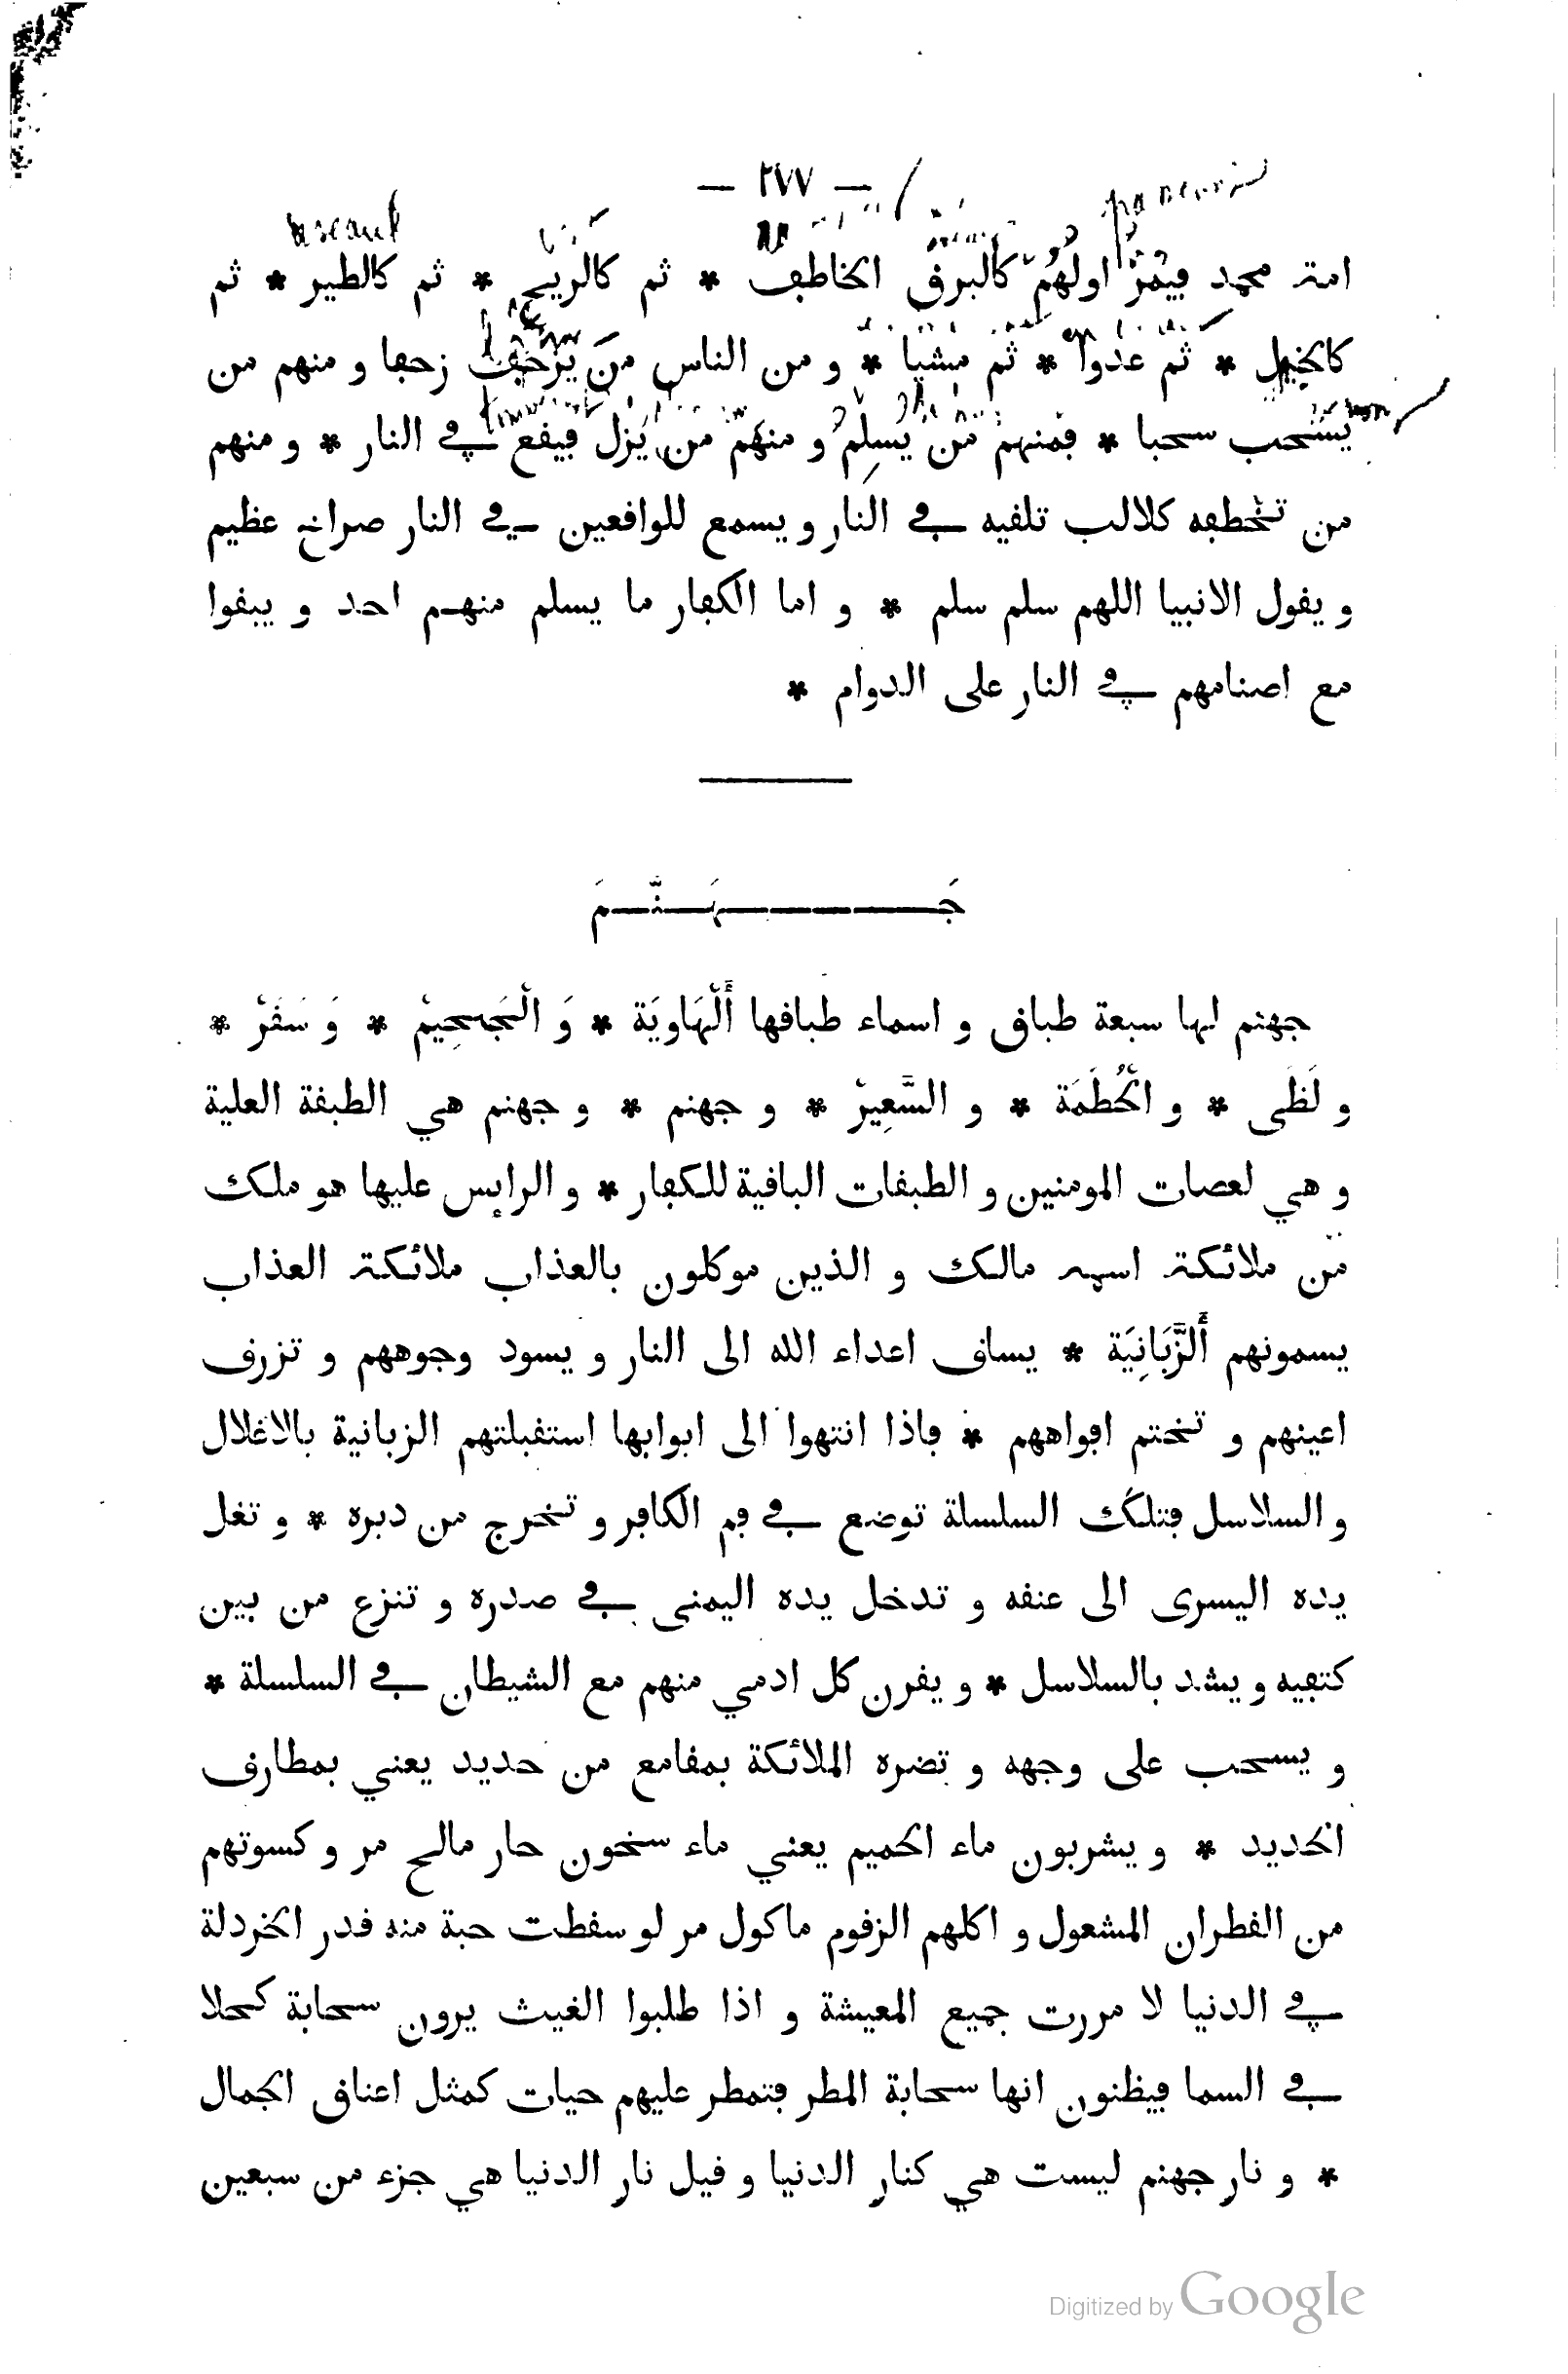 — ٢٧٧ —
امة محمد فيَمُرُّ اولهُم كالبرق الخاطف * ثم كالرّيح * ثم كالطير * ثم
كالخيل * ثمّ عَدْوا * ثم مشيا * و من الناس من يَزْحف زحفا و منهم من
يسحب سحبا * فمنهم من يُسلِم و منهم من يَزل فيقع في النار * و منهم
من تخطفه كلالب تلقيه في النار و يسمع للواقعين في النار صراخ عظيم
و يقول الانبيا اللهم سلم سلم * و اما الكفار ما يسلم منهم احد و يبقوا
مع اصنامهم في النار على الدوام *
جَهَنَّمَ
جهنم لها سبعة طباق و اسماء طباقها أَلْهَاوِيَة * وَ الْجَحِيمْ * وَ سَقَرْ *
و لَظَى * و الْحُطَمَة * و السَّعِيرْ * و جهنم * و جهنم هي الطبقة العلية
و هي لعصات المومنين و الطبقات الباقية للكفار * و الرايس عليها هو ملك
من ملائكة اسمه مالك و الذين موكلون بالعذاب ملائكة العذاب
يسمونهم أَلزَّبَانِيَة * يساق اعداء الله الى النار و يسود وجوههم و تزرق
اعينهم و تختم افواههم * فاذا انتهوا الى ابوابها استقبلتهم الزبانية بالاغلال
و السلاسل فتلك السلسلة توضع في فم الكافر و تخرج من دبره * و تغل
يده اليسرى الى عنقه و تدخل يده اليمنى في صدره و تنزع من بين
كتفيه و يشد بالسلاسل * و يقرن كل ادمي منهم مع الشيطان في السلسلة *
و يسحب على وجهه و تضره الملائكة بمقامع من حديد يعني بمطارق
الحديد * و يشربون ماء الحميم يعني ماء سخون حار مالح مر و كسوتهم
من القطران المشعول و اكلهم الزقوم ماكول مر لو سقطت حبة منه قدر الخردلة
في الدنيا لا مررت جميع المعيشة و اذا طلبوا الغيث يرون سحابة كحلا
في السما فيظنون انها سحابة المطر فتمطر عليهم حيات كمثل اعناق الجمال
* و نار جهنم ليست هي كنار الدنيا و قيل نار الدنيا هي جزء من سبعين
Digitized by Google